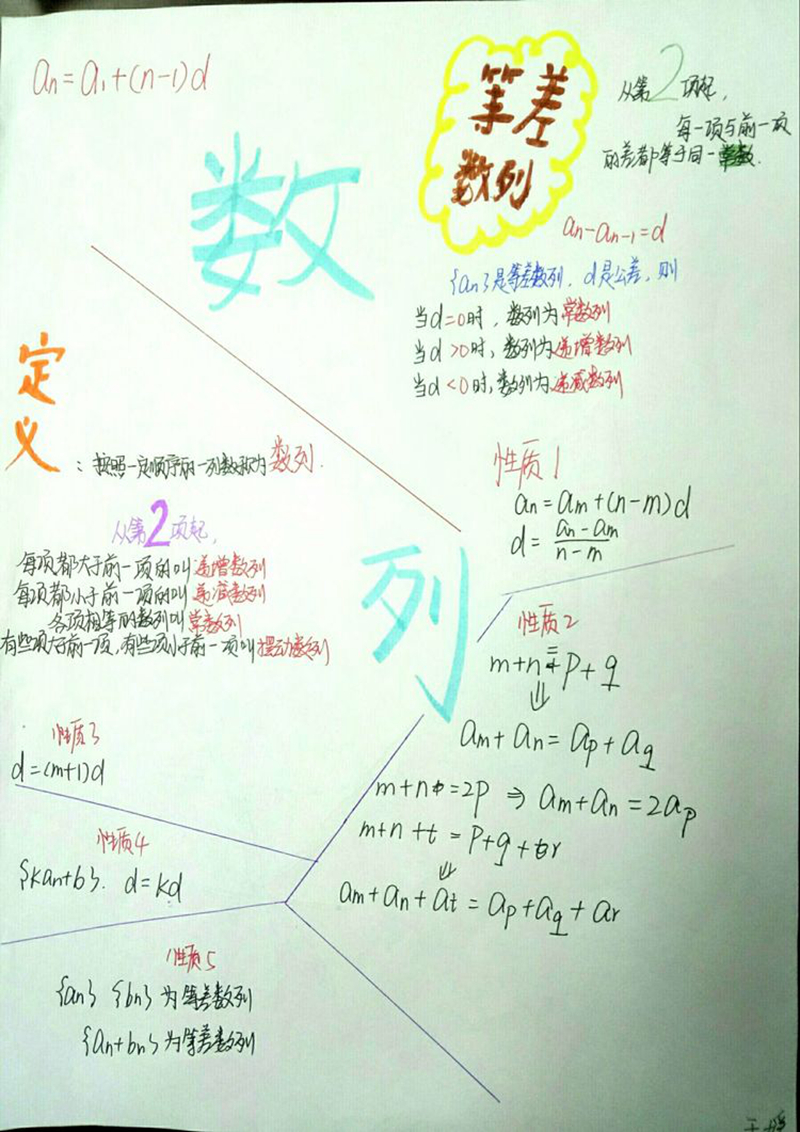 an=a1+(n-1)d
数
列
等差
数列
从第2项起,
每一项与前一项
的差都等于同一常数.
an-an-1=d
{an}是等差数列,d是公差,则
当d=0时,数列为常数列
当d>0时,数列为递增数列
当d<0时,数列为递减数列
定义
:按照一定顺序的一列数称为数列.
从第2项起,
每项都大于前一项的叫递增数列
每项都小于前一项的叫递减数列
各项相等的数列叫常数列
有些项大于前一项,有些项小于前一项叫摆动数列
性质1
an=am+(n-m)d
d=\frac{an-am}{n-m}
性质2
m+n=p+q
⇓
am+an=ap+aq
m+n=2p⇒am+an=2ap
m+n+t=p+q+r
⇓
am+an+at=ap+aq+ar
性质3
d=(m+1)d
性质4
{kan+b}. d=kd
性质5
{an} {bn}为等差数列
{an+bn}为等差数列